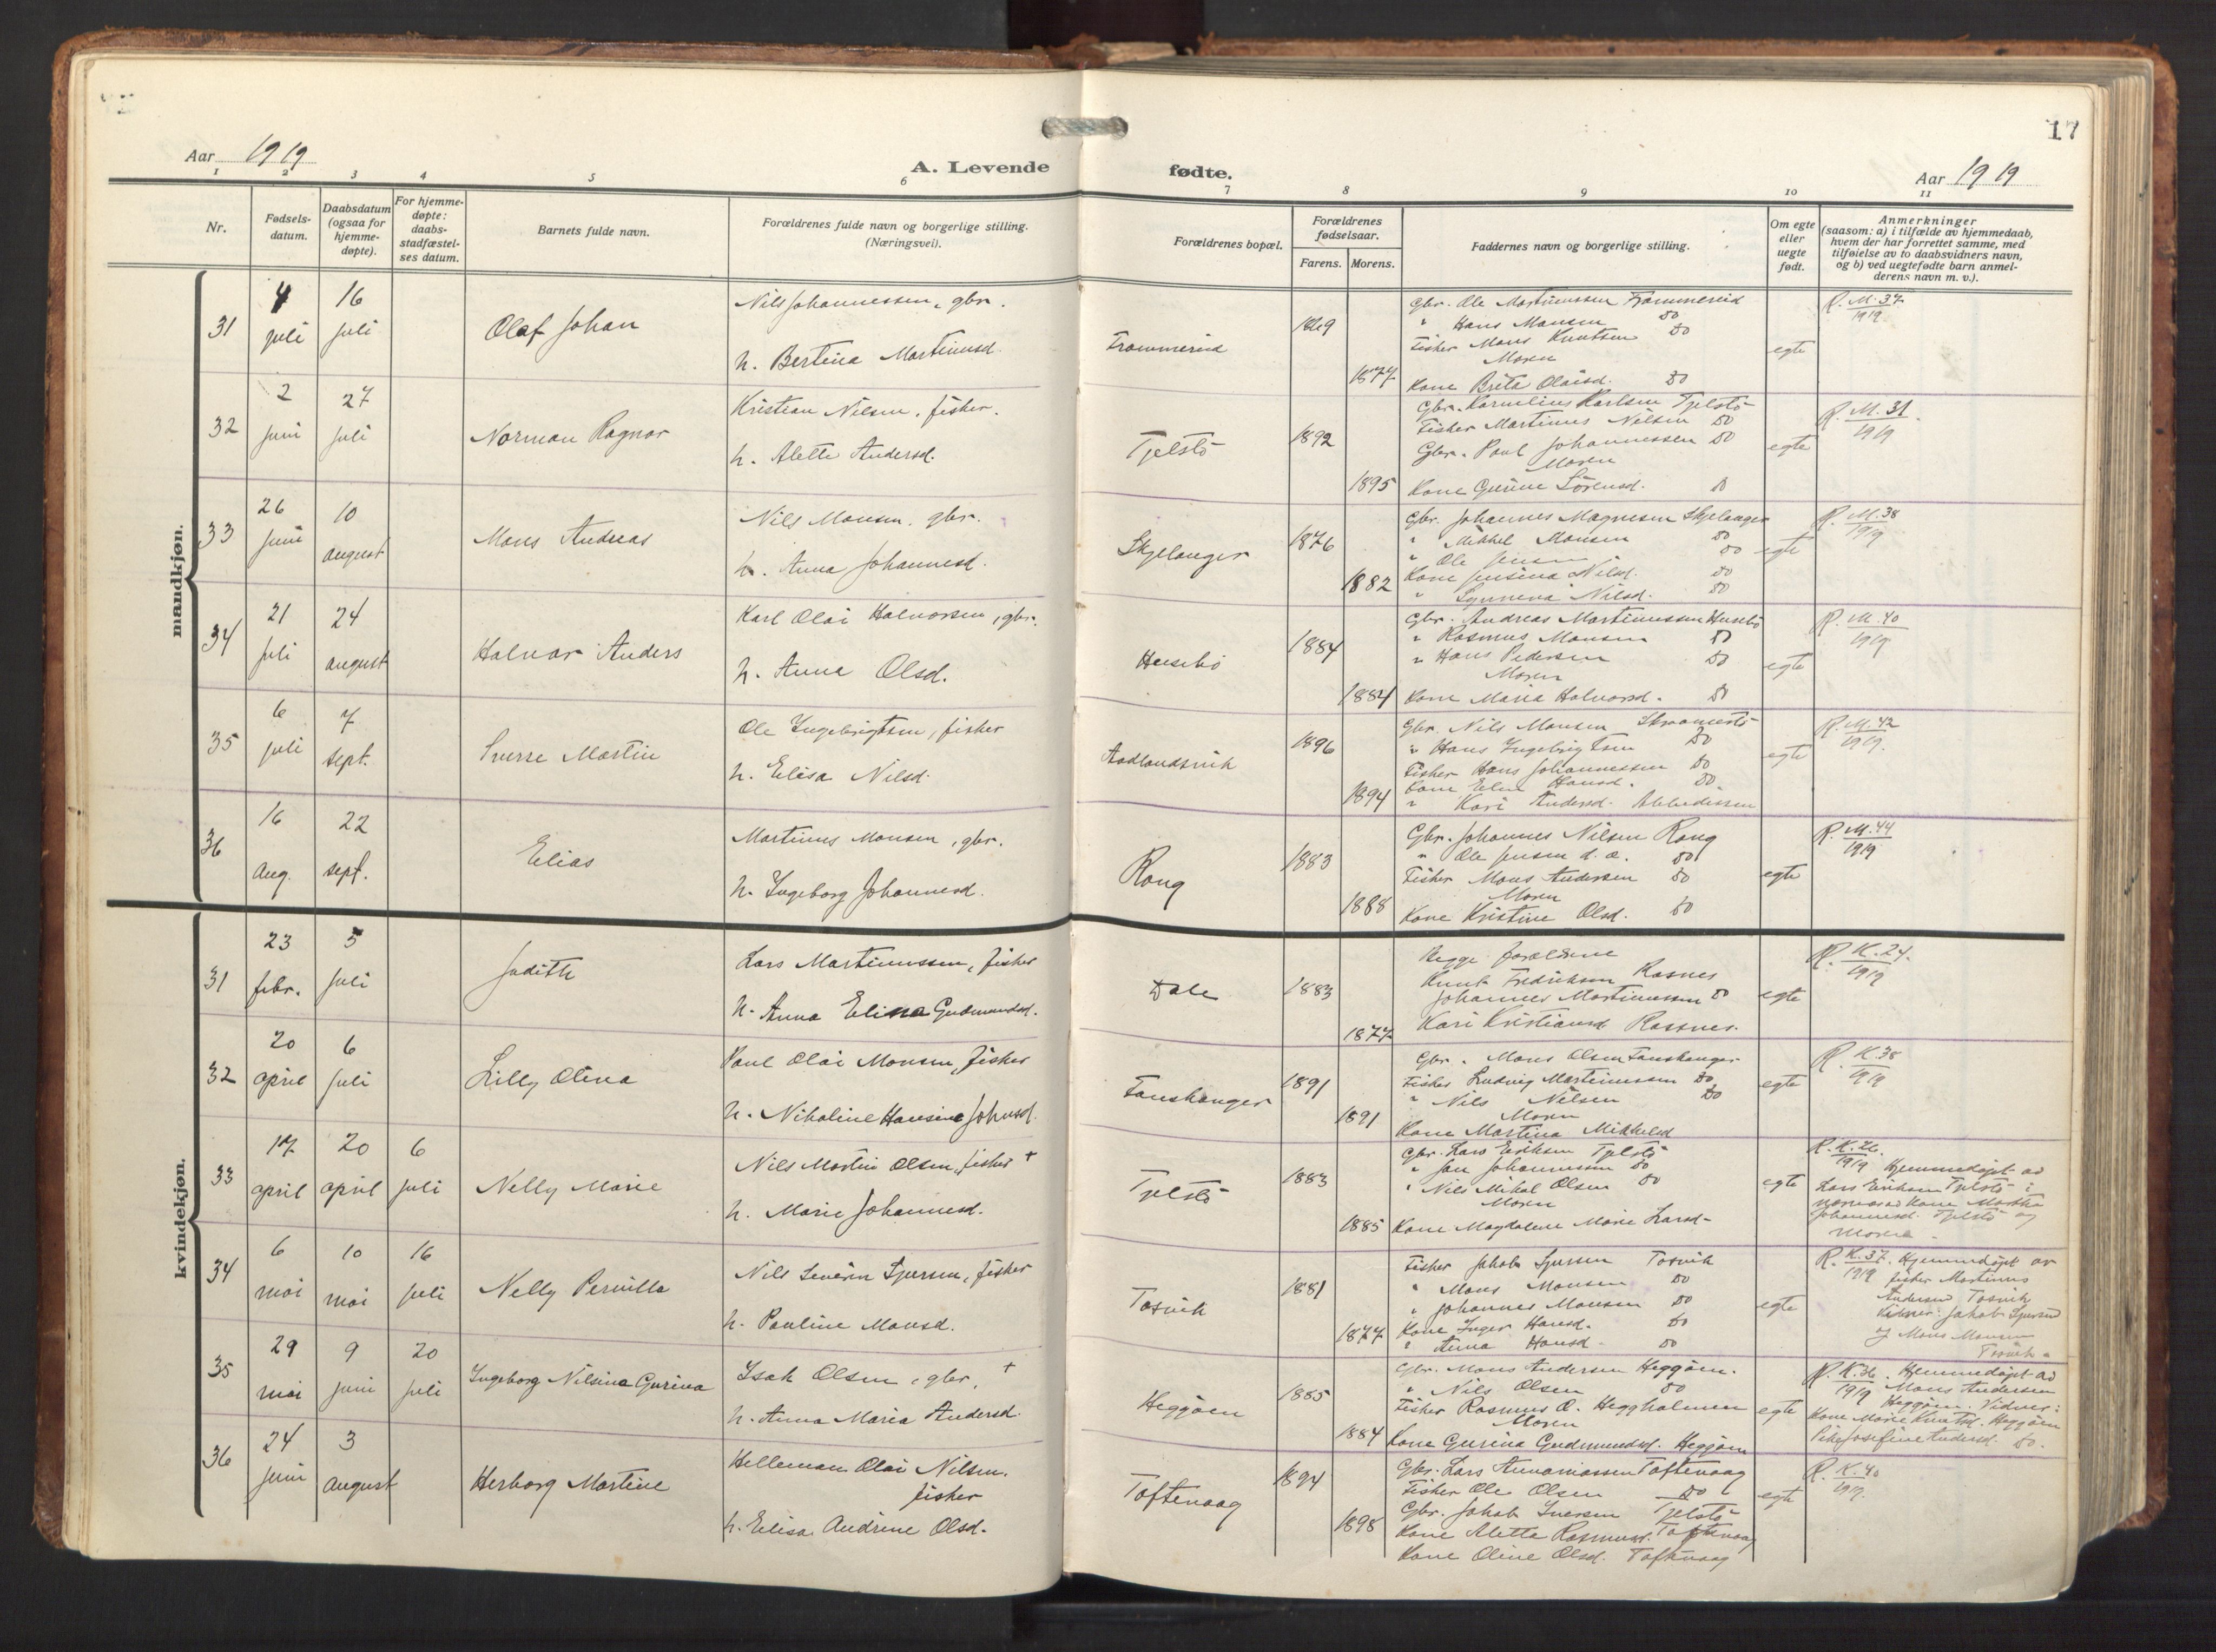 17
Aar 1919
A. Levende
fødte.
Aar 1919
1 2 3 4 5 6 7 8 9 10 11
Nr.
Fødsels-
datum.
Daabsdatum
(ogsaa for
hjemme-
døpte).
For hjemme-
døpte:
daabs-
stadfæstel-
ses datum.
Barnets fulde navn.
Forældrenes fulde navn og borgerlige stilling.
(Næringsvei).
Forældrenes bopæl.
Forældrenes
fødselsaar.
Farens. Morens.
Faddernes navn og borgerlige stilling.
Om egte
eller
uegte
født.
Anmerkninger
(saasom: a) i tilfælde av hjemmedaab,
hvem der har forrettet samme, med
tilføielse av to daabsvidners navn,
og b) ved uegtefødte barn anmel-
derens navn m. v.).
mandkjøn.
31
4
juli
16
juli
Olaf Johan
Nils Johannessen, gbr.
h. Bertina Martinusd.
1877
Gbr. Ole Martinussen
" Hans Monsen Do
Fisker Mons Knutsen Do
Moren
Kone Brita Olaisd. Do
egte
R. M. 37
1919
32
2
juni
27
juli
Norman Ragnar
Kristian Nilsen, fisker.
h. Alette Andersd.
Tjelstö
1892
1895
Gbr. Kornelius Karlsen Tjelstö
Fisker Martinus Nilsen Do
Gbr. Paul Johannessen Do
Moren
Kone Gurine Sörensd. Do
egte
R. M. 31.
1919
33
26
juni
10
august
Mons Andreas
Nils Monsen, gbr.
h. Anna Johannesd.
Skjelanger
1876
1882
Gbr. Johannes Magnesen Skjelanger
" Mikkel Monsen Do
" Ole Jensen Do
Kone Jensina Nilsd. Do
" Synneva Nilsd. Do
egte
R. M. 38
1919
34
21
juli
24
august
Halvar Anders
Karl Olai Halvorsen, gbr.
h. Anna Olsd.
Husebö
1884
1884
Gbr. Andreas Martinussen Husebö
" Rasmus Monsen Do
" Hans Pedersen Do
Moren
Kone Maria Halvorsd. Do
egte
R. M. 40
1919
35
6
juli
7
sept.
Sverre Martin
Ole Ingebrigtsen, fisker
h. Elisa Nilsd.
Aadlandsvik
1896
1894
Gbr. Nils Monsen
" Hans Ingebrigtsen Do
Fisker Hans Johannessen Do
Kone Eline Hansd. Do.
" Kari Andersd.
egte
R. M. 42
1919.
36
16
aug.
22
sept.
Elias
Martinus Monsen, gbr.
h. Ingeborg Johannesd.
Rong
1883
1888
Gbr. Johannes Nilsen Rong
" Ole Jensen d. æ. Do
Fisker Mons Andersen Do
Moren
Kone Kristine Olsd. Do
egte
R. M. 44
1919
kvindekjøn.
31
23
febr.
5
juli
Judith
Lars Martinussen, fisker
h. Anna Elina Gudmundsd.
Dale
1883
1877
Begge forældrene
Knut Fredriksen Rosnes
Johannes Martinussen Do
Kari Kristiansd Rossnes.
egte
R. K. 24.
1919
32
20
april
6
juli
Lilly Olena
Paul Olai Monsen, fisker
h. Nikoline Hansine Johnsd.
Fonskanger
1891
1891
Gbr. Mons Olsen Fonskanger
Fisker Ludvig Martinussen Do
" Nils Nilsen Do
Moren
Kone Martina Mikkelsd
egte
R. K. 38
1919
33
17
april
20
april
6
juli
Nelly Marie
Nils Martin Olsen, fisker +
h. Marie Johannesd.
Tjelstö
1883
1885
Gbr. Lars Eriksen Tjelstö
" Jan Johannessen Do
" Nils Mikal Olsen Do
Moren
Kone Magdalene Marie Larsd-
egte
R. K. 26.
1919 Hjemmedöpt av
Lars Eriksen Tjelstö i
nærvær av Kone Martha
Johannesd. Tjelstö og
Moren.
34
6
mai
10
mai
16
juli
Nelly Pernilla
Nils Severin Sjursen, fisker
h. Pauline Monsd.
Tosvik
1881
1877
Fisker Jakob Sjursen Tosvik
" Mons Monsen Do
" Johannes Monsen Do
Kone Inger Hansd. Do
" Anna Hansd. Do
egte
R. K. 37. Hjemmedöpt av
1919 fisker Martinus
Andersen Tosvik
Vidner: Jakob Sjursen
og Mons Monsen
Tosvik.
35
29
mai
9
juni
20
juli
Ingeborg Nilsina Gurina
Isak Olsen, gbr. +
h. Anna Maria Andersd.
Heggöen
1885
1884
Gbr. Mons Andersen Heggöen.
" Nils Olsen Do
Fisker Rasmus O. Heggholmen
Moren
Kone Gurina Gudmundsd. Heggöen
egte
R. K. 36. Hjemmedöpt av
1919 Mons Andersen
Heggöen. Vidner:
Kone Marie Knutsd. Heggöen
Pike Josefine Andersd. Do.
36
24
juni
3
august
Herborg Martine
Helleman Olai Nilsen.
fisker
h. Elisa Andrine Olsd.
Toftevaag
1894
1898
Gbr. Lars Annaniassen Toftevaag
Fisker Ole Olsen Do
Gbr. Jakob Iversen Tjelstö
Kone Aletta Rasmusd. Toftevaag
Kone Oline Olsd. Toftevaag
egte
R. K. 40
1919.